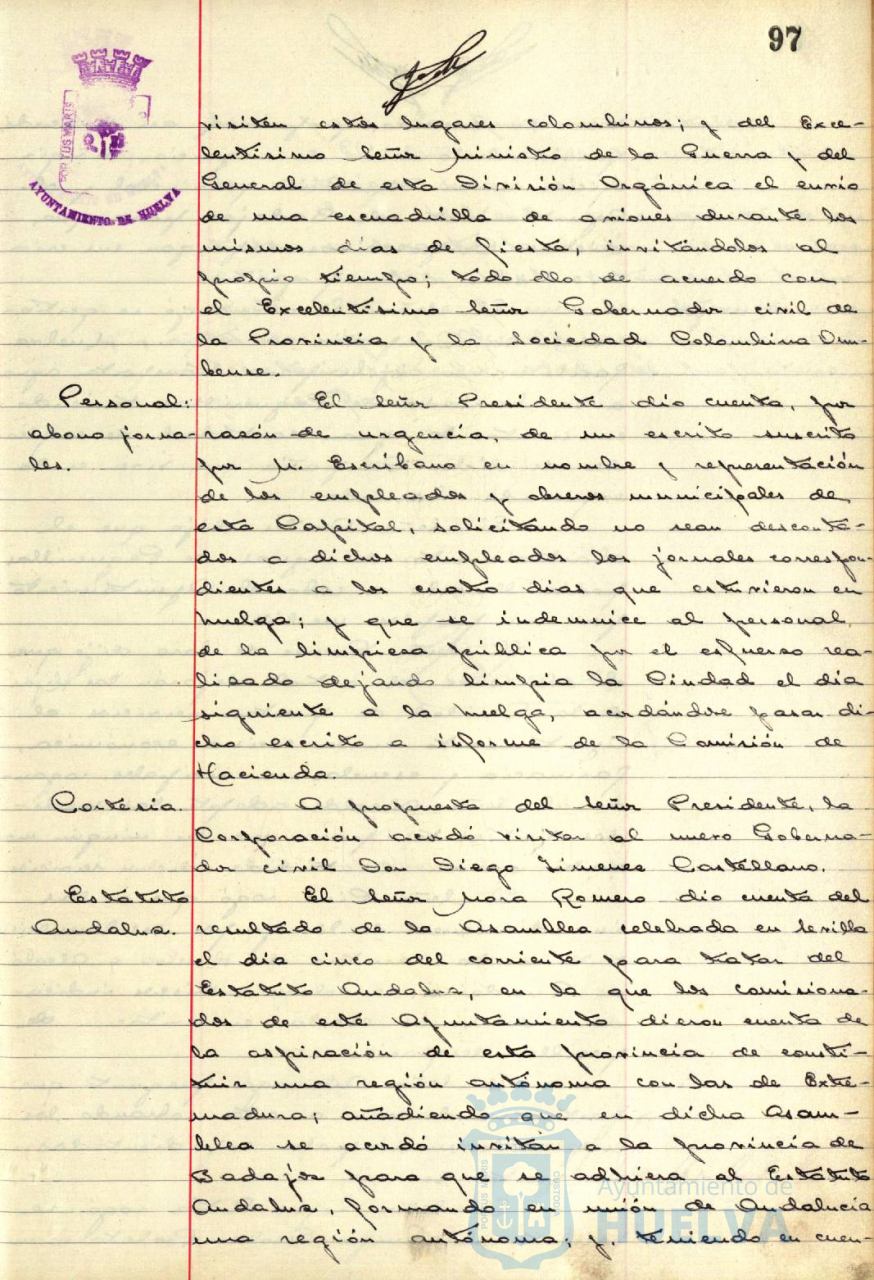 97
PORTUS MARIS
AYUNTAMIENTO DE HUELVA
visiten estos lugares colombinos; y del Exce-
lentísimo Señor Ministro de la Guerra y del
General de esta División Orgánica el envio
de una escuadrilla de aviones durante los
mismos días de fiesta, invitándolos al
propio tiempo; todo ello de acuerdo con
el Excelentísimo Señor Gobernador civil de
la Provincia y la Sociedad Colombina Onu-
bense.
Personal:
abono jorna-
les.
El Señor Presidente dio cuenta, por
razón de urgencia, de un escrito suscrito
por M. Escribano en nombre y representación
de los empleados y obreros municipales de
esta Capital, solicitando no sean desconta-
dos a dichos empleados los jornales correspon-
dientes a los cuatro dias que estuvieron en
huelga; y que se indemnice al personal
de la limpieza pública por el esfuerzo rea-
lizado dejando limpia la Ciudad el día
siguiente a la huelga, acordándose pasar di-
cho escrito a informe de la Comisión de
Hacienda.
Cortesia.
A propuesta del Señor Presidente, la
Corporación acordó visitar al nuevo Goberna-
dor civil Don Diego Jimenez Castellano.
Estatuto
Andaluz.
El Señor Mora Romero dio cuenta del
resultado de la Asamblea celebrada en Sevilla
el dia cinco del corriente para tratar del
Estatuto Andaluz, en la que los comisiona-
dos de este Ayuntamiento dieron cuenta de
la aspiración de esta provincia de consti-
tuir una región autónoma con las de Extre-
madura; añadiendo que en dicha Asam-
blea se acordó invitar a la provincia de
Badajoz para que se adhiera al Estatuto
Andaluz, formando en unión de Andalucía
una región autónoma; y, teniendo en cuen-
Ayuntamiento de
HUELVA